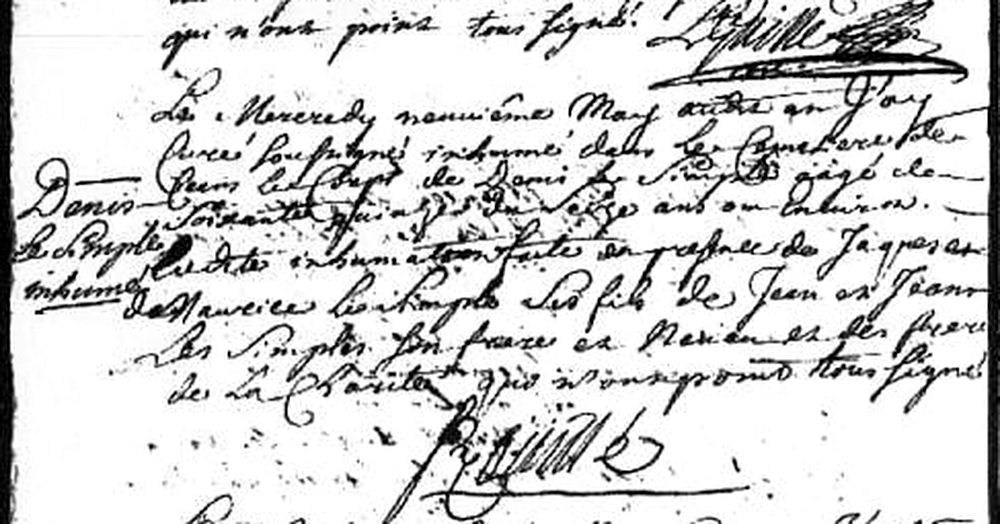 qui n'ont point tous signé.
Le Mercredy neuvième May audit an J'ay
Curé soussigné inhumé dans le Cemetiere de
Ceans le Corps de Denis le Simple aagé de
Denis
soixante quinze ou seize ans ou Environ.
Le Simple
Ladite inhumation faite en presence de Jaques et
inhumé
de Maurice les Simples ses fils de Jean et Jean
Les Simples son frere et Neveu et des frere
de La Charité qui n'ont point tous signé